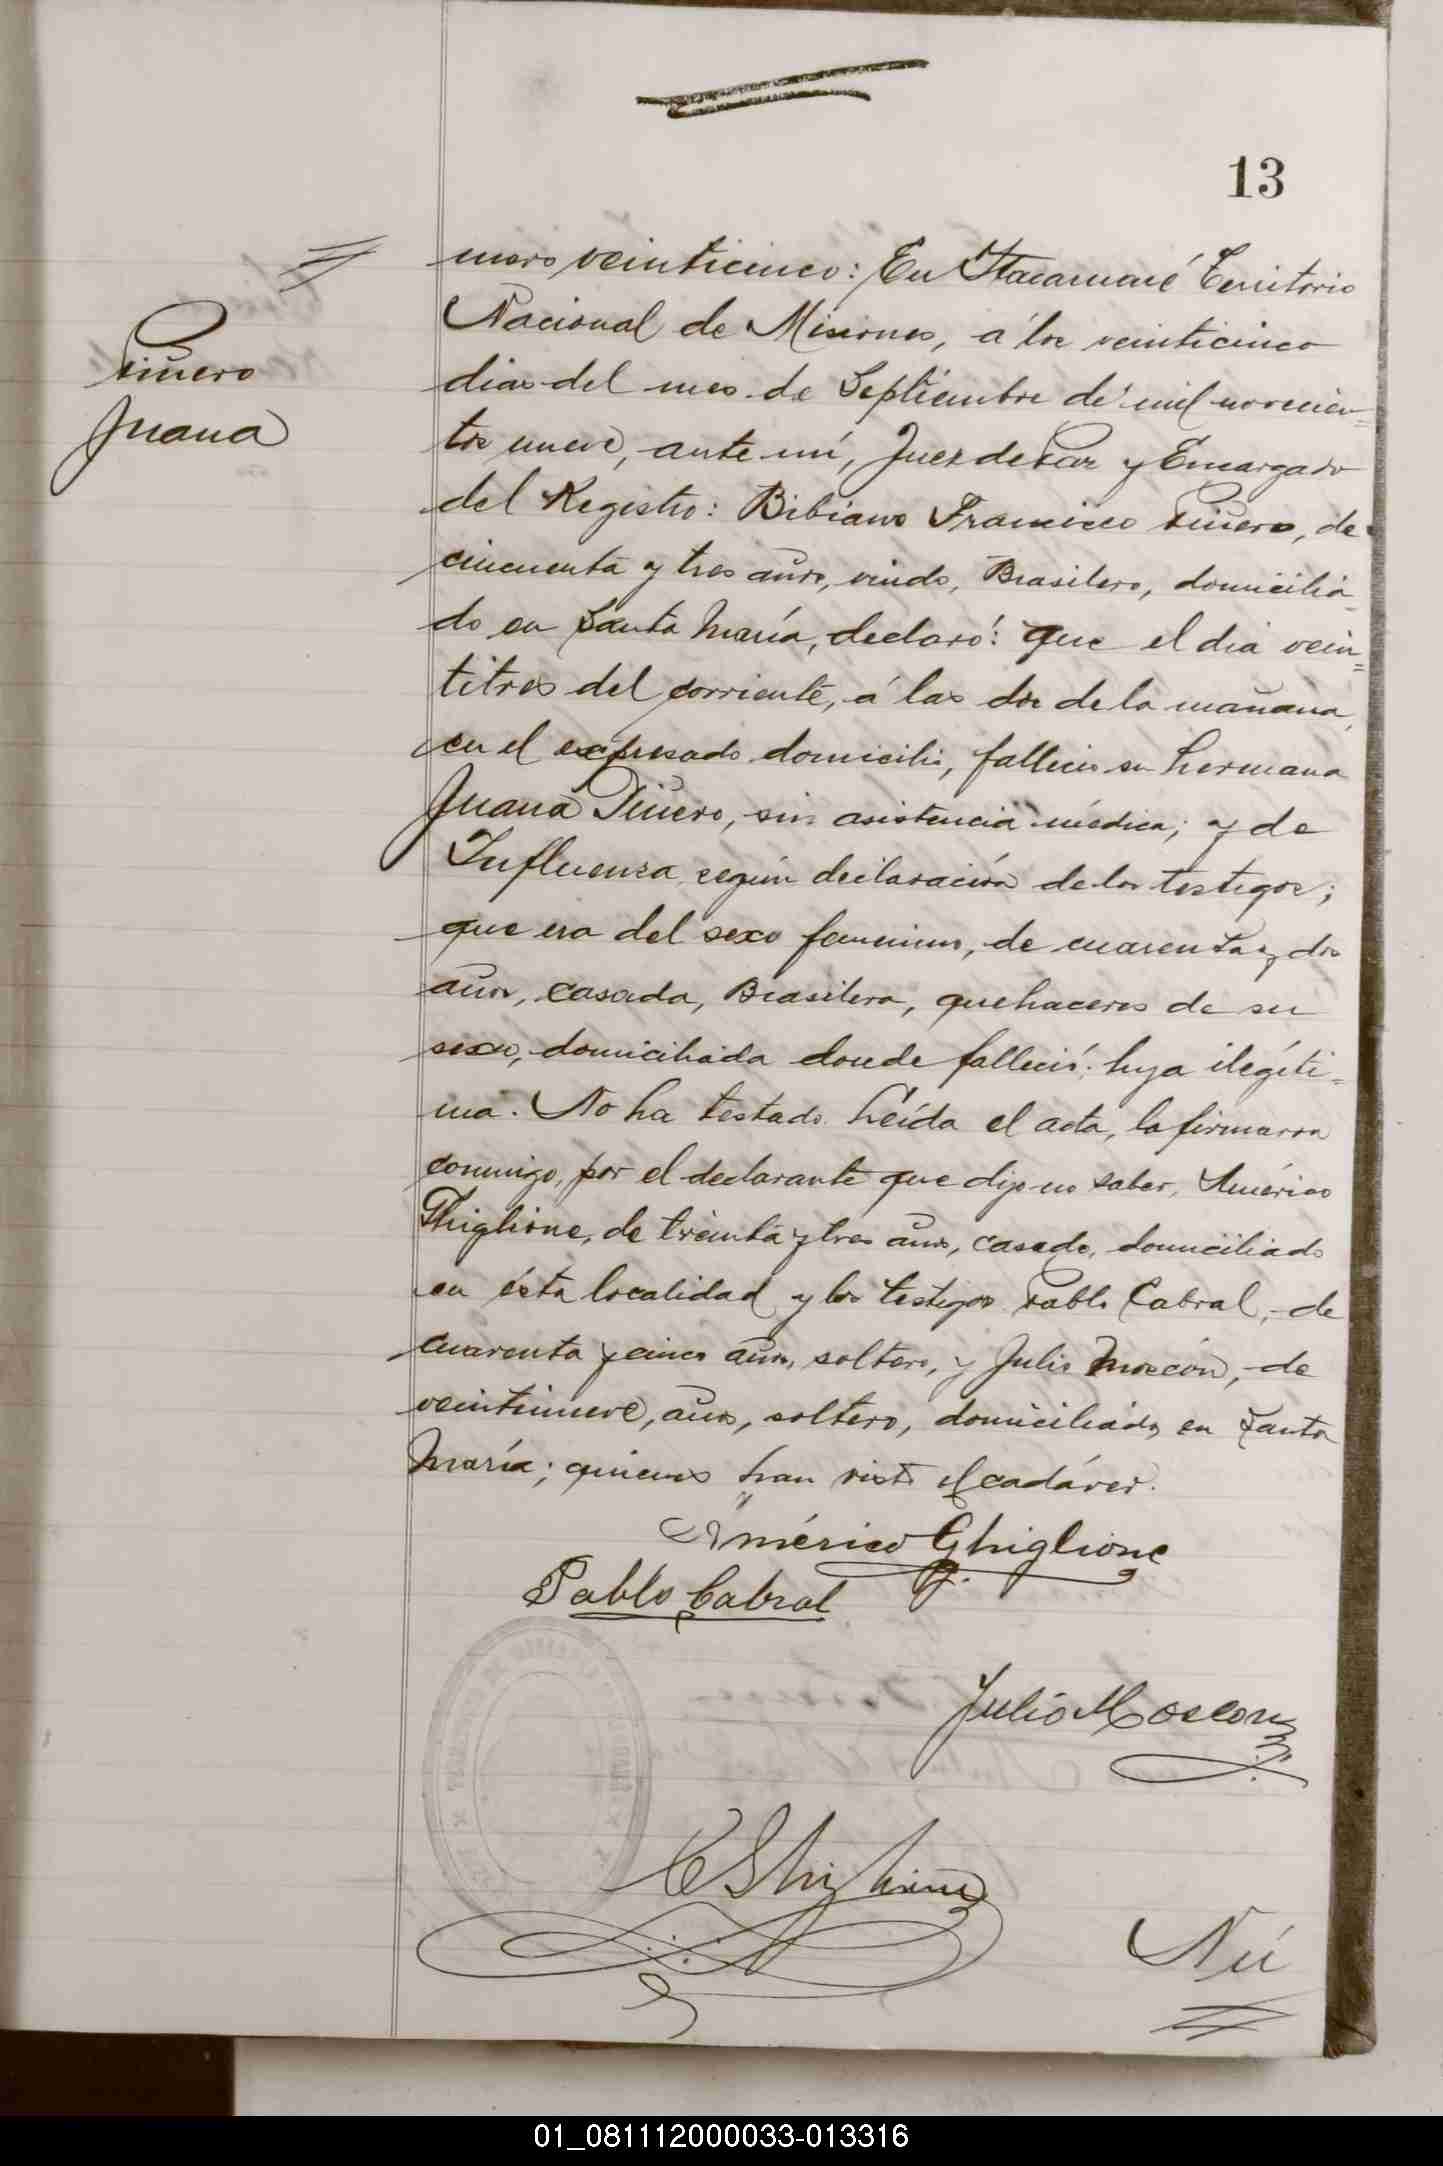 13
Piñero
Juana
mero veinticinco: En Itacaruaré Territorio
Nacional de Misiones, á los veinticinco
dias del mes de Septiembre de mil novecien=
tos nueve, ante mí, Juez de Paz y Encargado
del Registro: Bibiano Francisco Piñero, de
cincuenta y tres años, viudo, Brasilero, domicilia=
do en Santa María, declaró: que el dia vein=
titres del corriente, á las dos de la mañana,
en el expresado domicilio, falleció su hermana
Juana Piñero, sin asistencia médica; y de
Influenza, según declaración de los testigos;
que era del sexo femenino, de cuarenta y dos
años, casada, Brasilera, quehaceres de su
sexo, domiciliada donde falleció; hija ilegíti=
ma. No ha testado. Leída el acta, la firmaron
conmigo, por el declarante que dijo no saber, Américo
Ghiglione, de treinta y tres años, casado, domiciliado
en ésta localidad y los testigos Pablo Cabral, de
cuarenta y cinco años, soltero, y Julio Moscon, de
veintinueve, años, soltero, domiciliados en Santa
María; quienes han visto el cadáver.
Américo Ghiglione
Pablo Cabral
Julio Moscon
Ghiglione
Nú
01_081112000033-013316